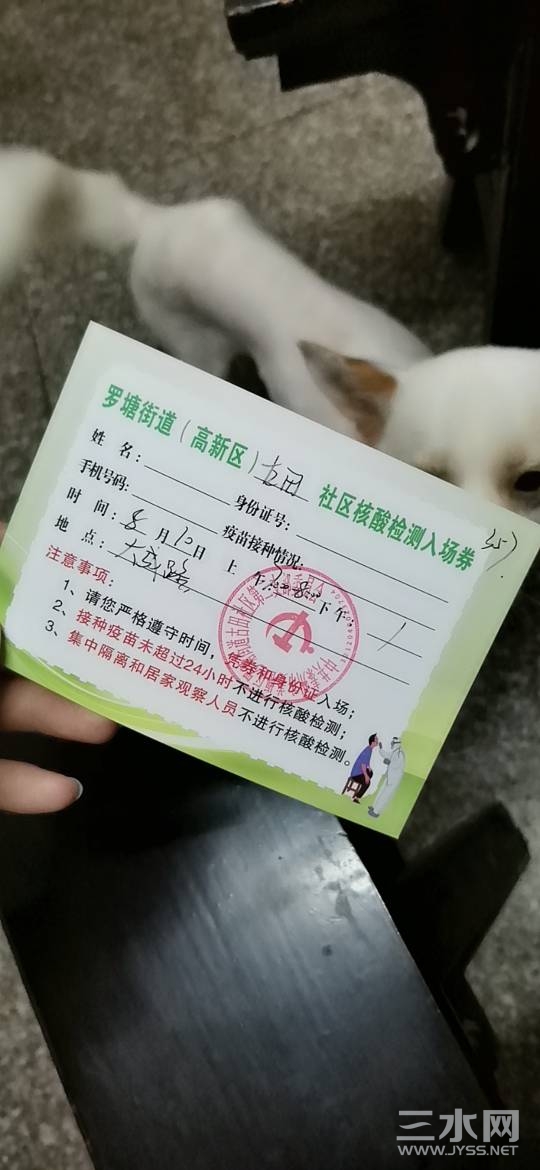 罗塘街道（高新区）古田 社区核酸检测入场券
357
姓 名： 身份证号：
手机号码： 疫苗接种情况：
时 间：8月10日 上午： 下午：/
地 点：大成路
注意事项：
1、请您严格遵守时间，凭券和身份证入场；
2、接种疫苗未超过24小时不进行核酸检测；
3、集中隔离和居家观察人员不进行核酸检测。
三水网
WWW.JYSS.NET